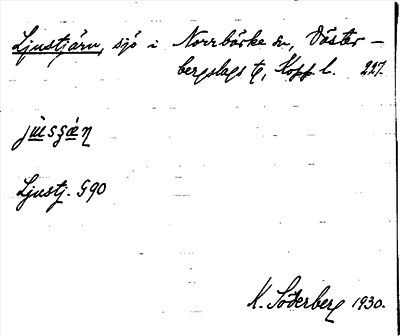 Ljustjärn, sjö i Norrbärke sn, Väster-
bergslags tg, Kopp. l. 227.
Ljustj. G90
K. Söderberg 1930.